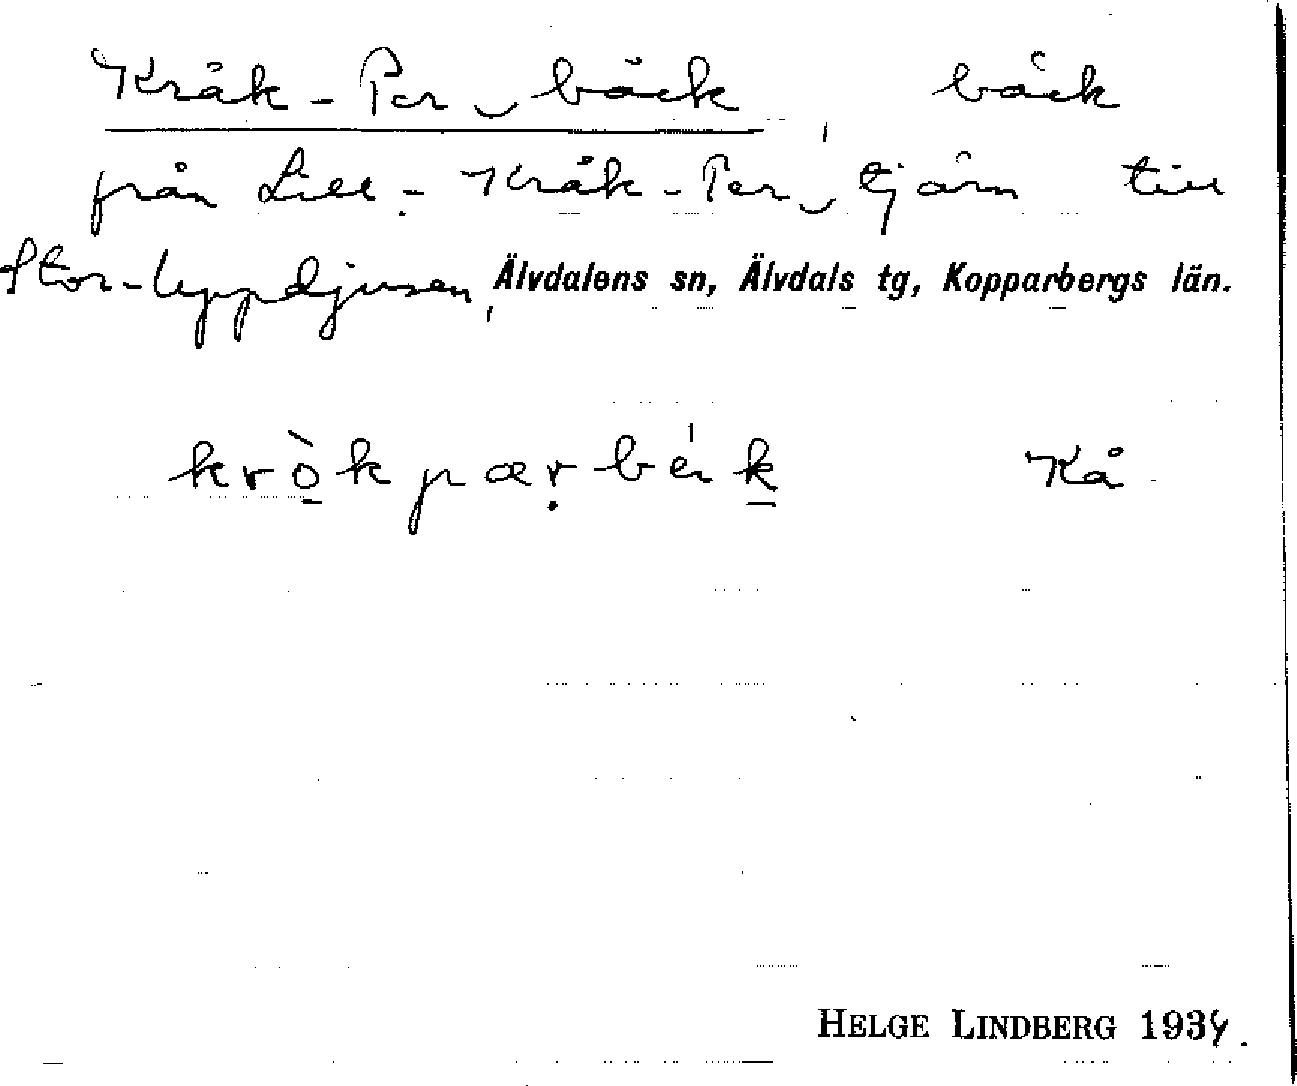 Kråk-Per‿bäck, bäck
från Lill-Kråk-Per‿tjärn till
Stor-Lyppdjusen, Älvdalens sn, Älvdals tg, Kopparbergs län.
kròkpærbék Kå
HELGE LINDBERG 1934.